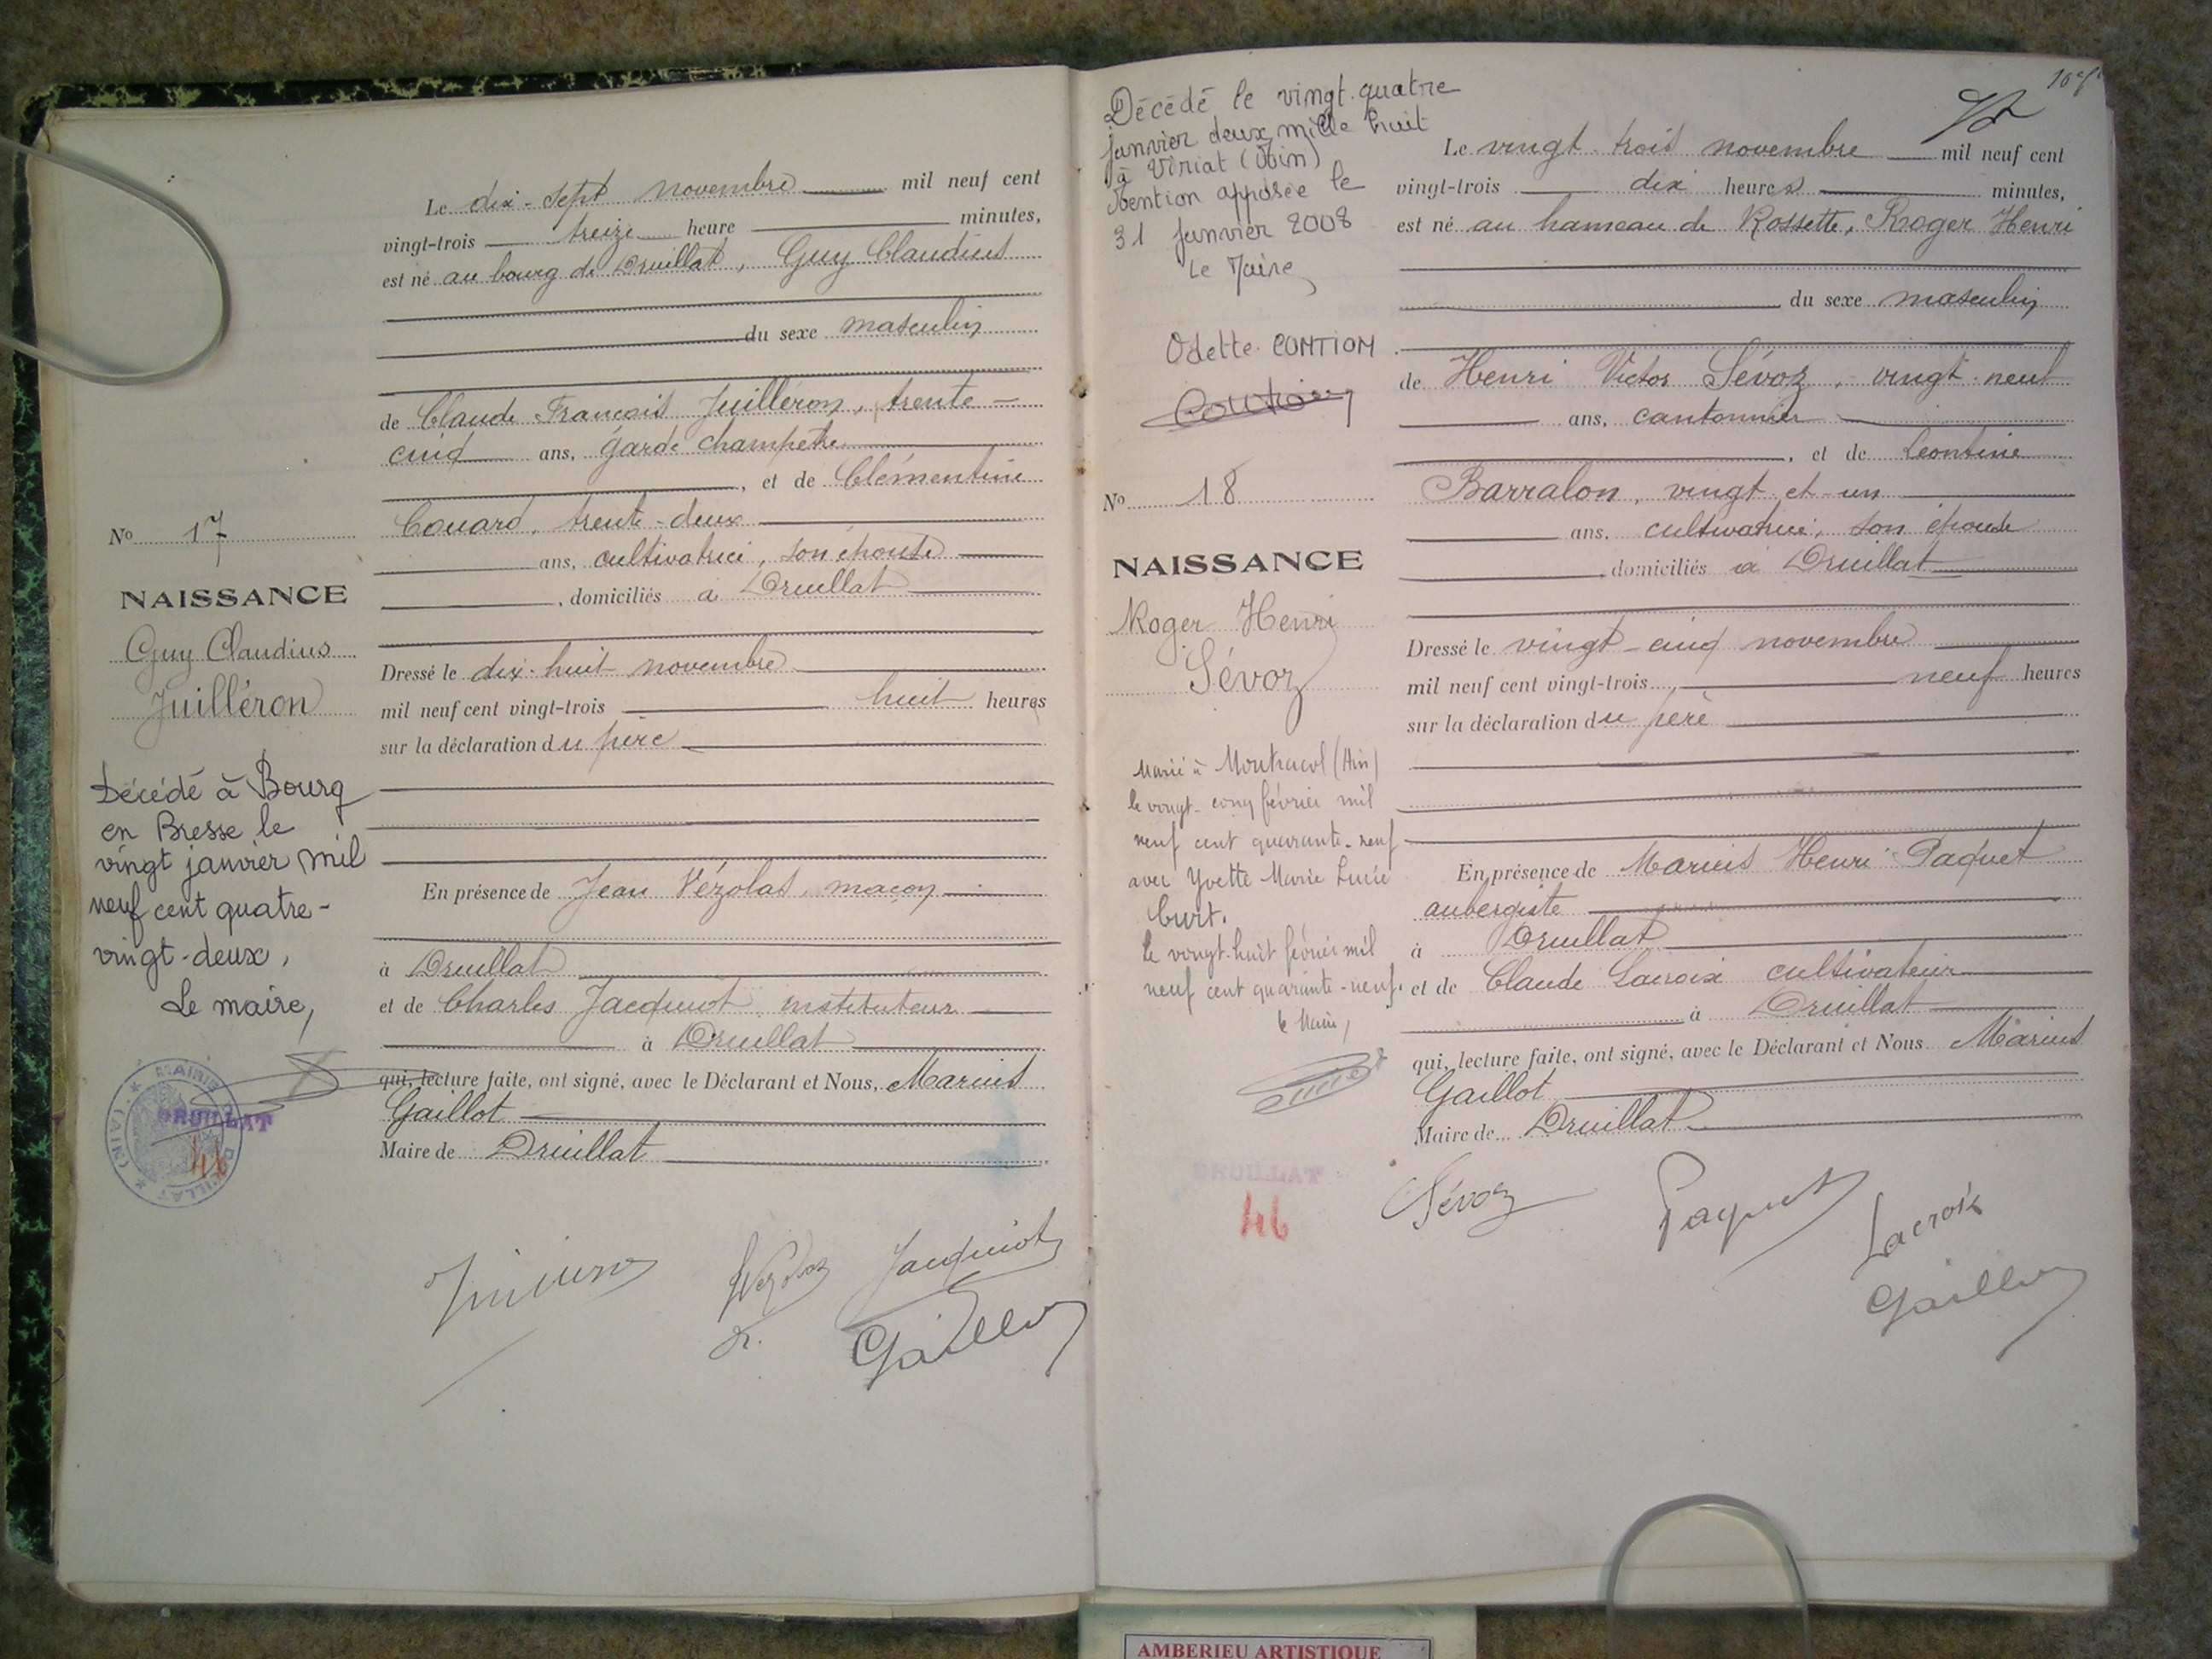 Le dix-sept novembre mil neuf cent
vingt-trois treize heure minutes,
est né au bourg de Druillat, Guy Claudius
du sexe masculin
de Claude François Juilléron, trente-
cinq ans, garde champêtre
, et de Clémentine
Couard, trente-deux
ans, cultivatrice, son épouse
, domiciliés à Druillat
Dressé le dix-huit novembre
mil neuf cent vingt-trois huit heures
sur la déclaration du père
En présence de Jean Vézolas, maçon
à Druillat
et de Charles Jacquiot instituteur
à Druillat
qui, lecture faite, ont signé, avec le Déclarant et Nous, Marius
Gaillot
Maire de Druillat
Jacquiot
Gaillot
No 17
NAISSANCE
Guy Claudius
Juilléron
Décédé à Bourg
en Bresse le
vingt janvier mil
neuf cent quatre-
vingt-deux,
Le maire,
MAIRIE DE DRUILLAT (AIN)
DRUILLAT
46
Décédé le vingt-quatre
janvier deux mille huit
à Viriat (Ain)
Mention apposée le
31 janvier 2008
Le Maire
Odette CONTION
No 18
NAISSANCE
Roger Henri
Sévoz
Marié à Montracol (Ain)
le vingt-cinq février mil
neuf cent quarante-neuf
avec Yvette Marie Lucie
le vingt-huit février mil
neuf cent quarante-neuf.
le Maire,
DRUILLAT
46
Le vingt trois novembre mil neuf cent
vingt-trois dix heures minutes,
est né au hameau de Rossette, Roger Henri
du sexe masculin
de Henri Victor Sévoz, vingt-neuf
ans, cantonnier
, et de Léontine
Barralon, vingt et un
ans, cultivatrice, son épouse
, domiciliés à Druillat
Dressé le vingt-cinq novembre
mil neuf cent vingt-trois neuf heures
sur la déclaration du père
En présence de Marius Henri Paquet
aubergiste
à Druillat
et de Claude Lacroix cultivateur
à Druillat
qui, lecture faite, ont signé, avec le Déclarant et Nous Marius
Gaillot
Maire de Druillat
Sévoz
Paquet
Lacroix
Gaillot
AMBERIEU ARTISTIQUE